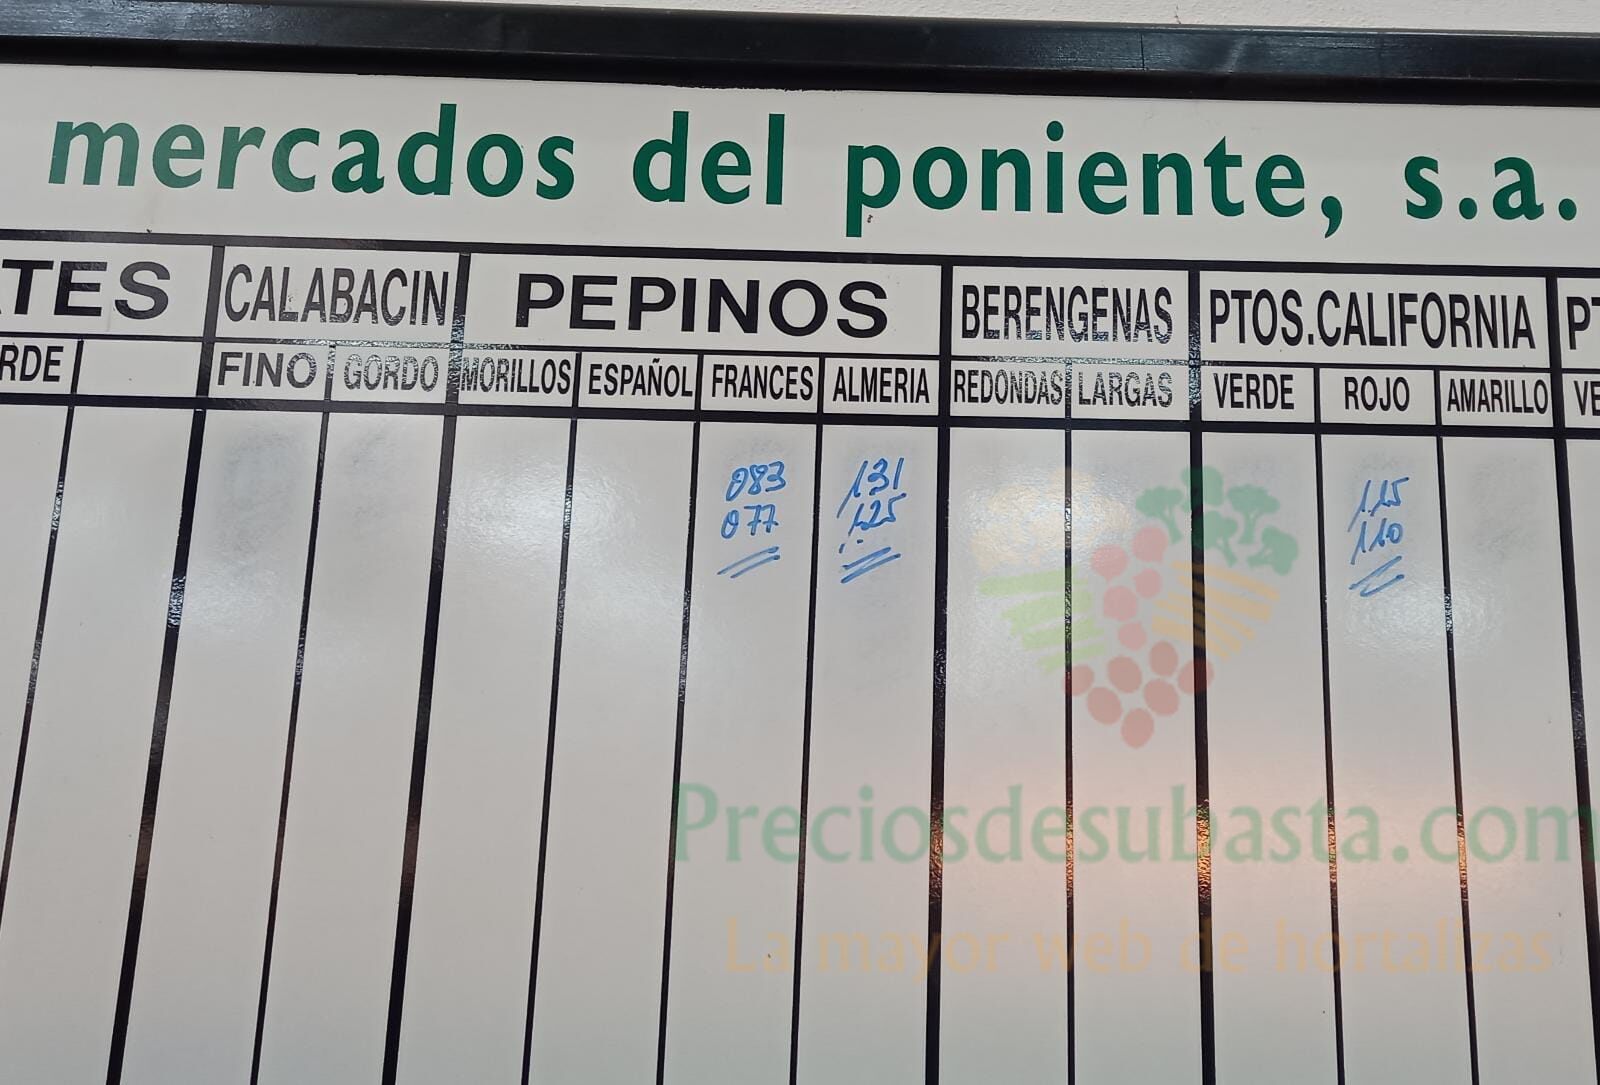 mercados del poniente, s.a.
TES CALABACIN PEPINOS BERENGENAS PTOS.CALIFORNIA PT
RDE FINO GORDO MORILLOS ESPAÑOL FRANCES ALMERIA REDONDAS LARGAS VERDE ROJO AMARILLO VE
083 131 1.15
077 1.25 1.10
Preciosdesubasta.com
La mayor web de hortalizas